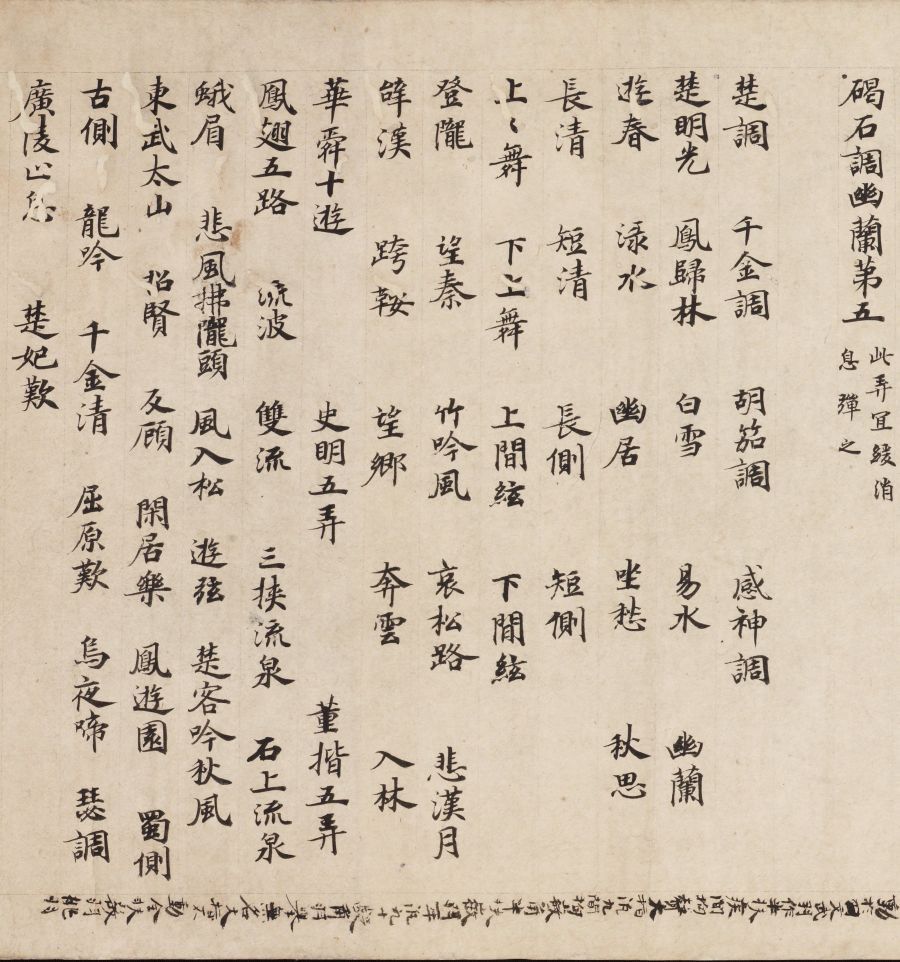 碣石調幽蘭第五 此弄宜緩消息彈之
楚調 千金調 胡笳調 感神調
楚明光 鳳歸林 白雪 易水 幽蘭
遊春 渌水 幽居 坐愁 秋思
長清 短清 長側 短側
上上舞 下上舞 上間絃 下間絃
登隴 望秦 竹吟風 哀松路 悲漢月
辞漢 跨鞍 望鄉 奔雲 入林
華舜十遊 史明五弄 董揩五弄
鳳翅五路 流波 雙流 三挾流泉 石上流泉
蛾眉 悲風拂隴頭 風入松 遊弦 楚客吟秋風
東武太山 招賢 反顧 閑居樂 鳳遊園 蜀側
古側 龍吟 千金清 屈原歎 烏夜啼 瑟調
廣陵止息 楚妃歎